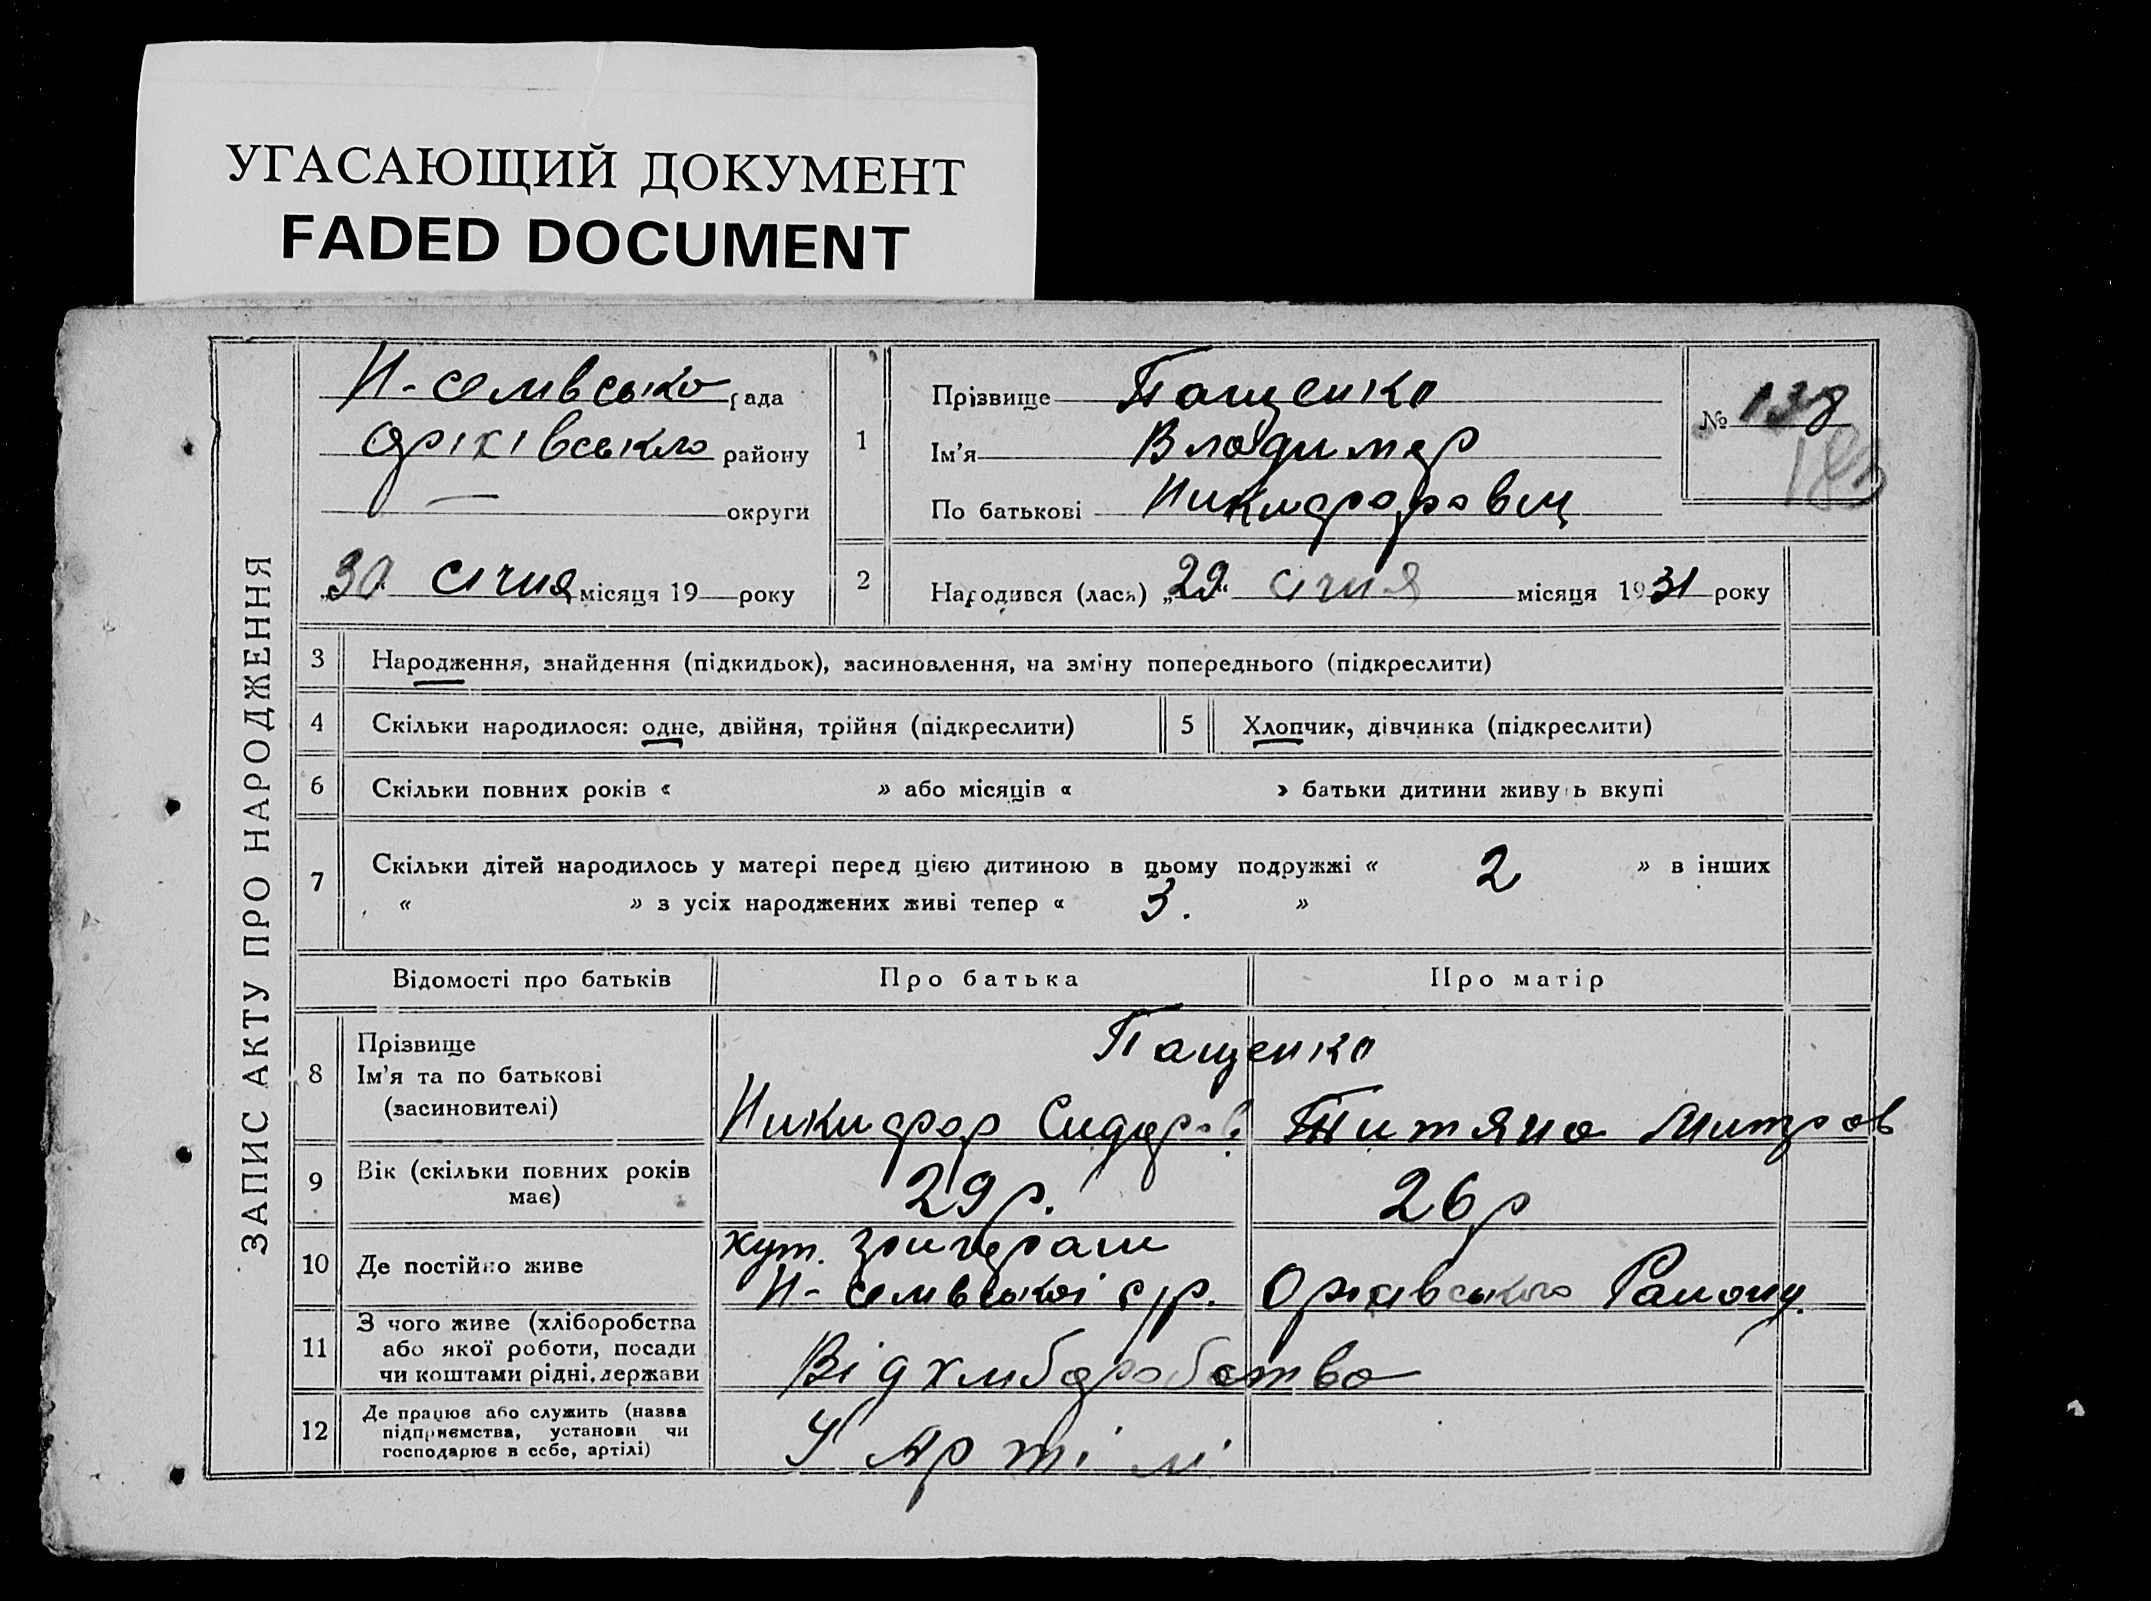 УГАСАЮЩИЙ ДОКУМЕНТ
FADED DOCUMENT
ЗАПИС АКТУ ПРО НАРОДЖЕННЯ
рада
району
округи
30 січня місяця 19 року
1
Прізвище Пащенко
Ім'я Владимер
По батькові Никифорович
№ 138
2
Народився (лася) „29“ січня місяця 1931 року
3 Народження, знайдення (підкидьок), засиновлення, на зміну попереднього (підкреслити)
4 Скільки народилося: одне, двійня, трійня (підкреслити)
5 Хлопчик, дівчинка (підкреслити)
6 Скільки повних років « » або місяців « » батьки дитини живуть вкупі
7 Скільки дітей народилось у матері перед цією дитиною в цьому подружжі « 2 » в інших
« » з усіх народжених живі тепер « 3. »
Відомості про батьків
Про батька
Про матір
8 Прізвище
Ім'я та по батькові
(засиновителі)
Пащенко
Никифор Сидоров
Митров
9 Вік (скільки повних років
має)
29 р.
26 р
10 Де постійно живе
хут.
с/р. Оріхівського Району.
11 З чого живе (хліборобства
або якої роботи, посади
чи коштами рідні, держави
Від хлиборобство
12 Де працює або служить (назва
підприємства, установи чи
господарює в себе, артілі)
У Артілі